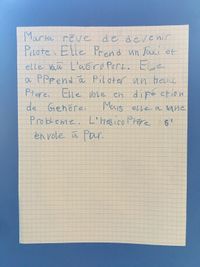 Maria rêve de devenir
Pilote. Elle Prend un taxi et
elle va L'aéroport. Elle
a PPrend à Piloter un
Elle vole en direction
de Genère. Mais elle a une
Problème. L'hélicoPtère s'
envole à Par.